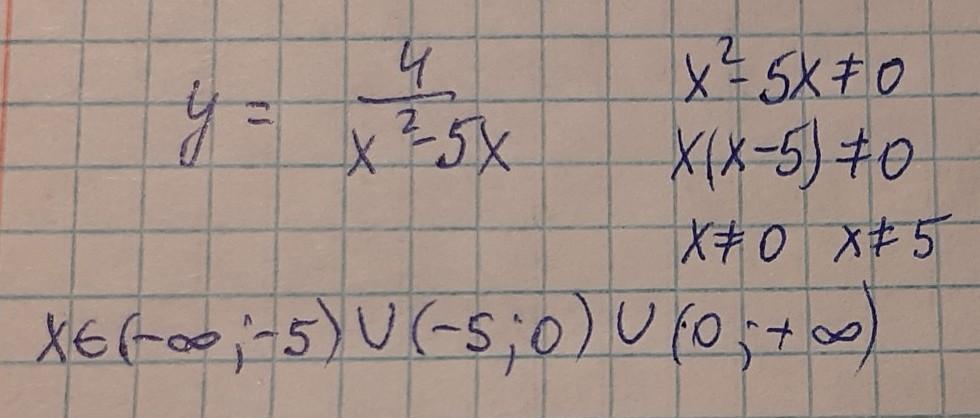 y = 4/(x² - 5x)
x² - 5x ≠ 0
x(x-5) ≠ 0
x ≠ 0 x ≠ 5
x ∈ (-∞; -5) ∪ (-5; 0) ∪ (0; +∞)